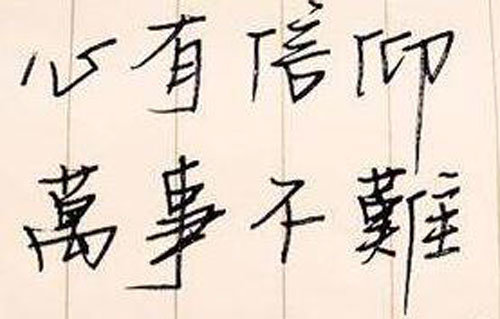 心有信仰
萬事不難